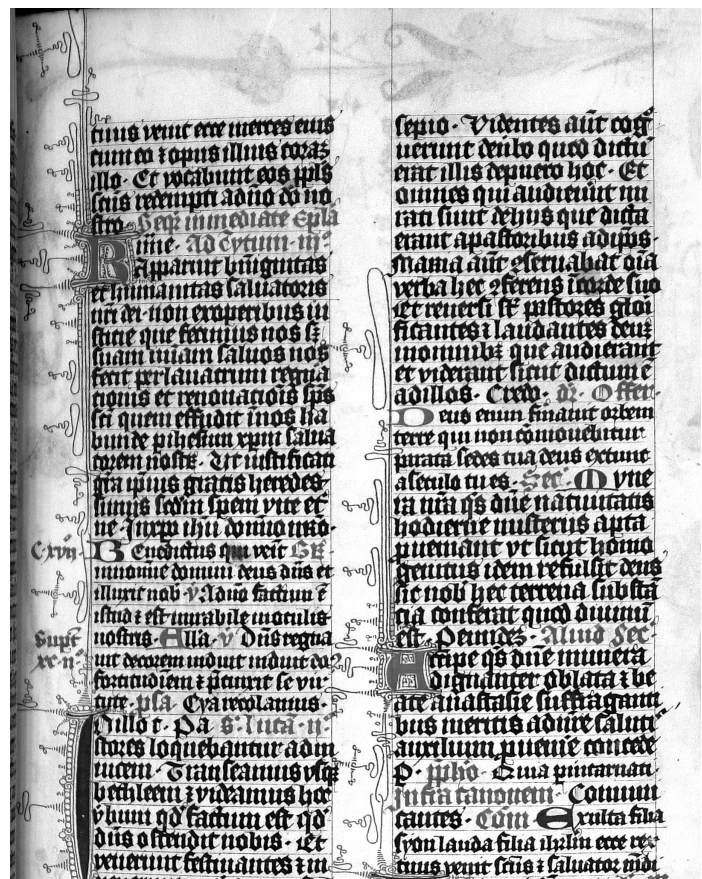 tuus venit ecce merces eius
cum eo ⁊ opus illius coraʒ
illo · Et vocabunt eos ppl̄s
sc̄us redempti a dn̄o dō no
stro · Seqr̄ immediate Ep̄la
R ime · Ad Tytum · iii ·
Apparuit bn̄ignitas
et humanitas saluatoris
nr̄i dei · non ex operibus iu
sticie que fecimus nos sʒ
suam mīam saluos nos
fecit per lauacrum regn̄a
cionis et renouationis sp̄s
sc̄i quem effudit in nos ha
bunde p ihesum xpm̄ salua
torem nostrū · Ut iustificati
gr̄a ipius gratis heredes
simus sedm̄ spem vite et̄
ne · In xp̄o ihū domino nr̄o ·
Cxvii · Benedictus qui veīt Gr̄
in nomine domini deus dn̄s et
illuxit nob · v̄ A dn̄o factum ē
istud ⁊ est mirabile in oculis
nostris · Alla · v̄ Dn̄s regna
uit decorem induit induit dn̄s
fortitudinem ⁊ p̄cinxit se vir
tute · psa · Eya recolamus ·
In illo t · Pa s · lucā · ii ·
stores loquebantur ad in
uicem · Transeamus vsqʒ
bethleem ⁊ videamus hoc
v̄bum qd̓ factum est qd̓
dn̄s ostendit nobis · Et
venerunt festinantes ⁊ in
sepio · Videntes aūt cog̓
uerunt de v̄bo quod dictū
erat illis de puero hoc · Et
omnes qui audierūt mi
rati sunt de hiis que dicta
erant a pastoribus ad ip̄os ·
Maria aūt ꝯseruabat oīa
verba hec ꝯferens ī corde suo
Et reuersi st̄ pastores glori
ficantes ⁊ laudantes deuʒ
in omnibʒ que audierant
et viderant sicut dictum ē
ad illos · Credo · dr̄ · Offer ·
Deus enim firmauit orbem
terre qui non cōmouebitur
parata sedes tua deus ex tunc
a seculo tu es · Sec̄ · Mune
ra nr̄a qs̄ dn̄e natiuitatis
hodierne misteriis apta
proueniant vt sicut homo
genitus idem refulsit deus
sic nob̓ hec terrena substā
cia conferat quod diuinū
est · Per eundeʒ · Aliud Sec̄ ·
Accipe qs̄ dn̄e munera
dignanter oblata ⁊ be
ate anastasie suffraganti
bus meritis ad nr̄e saluti
auxilium prouenire concede
P · p̄fho · Quia p incarnati
Infra canonem · Commu
cantes · Com̄ Exulta filia
syon lauda filia ihrl̄m ecce rex
tuus venit sc̄us ⁊ saluator mūdi